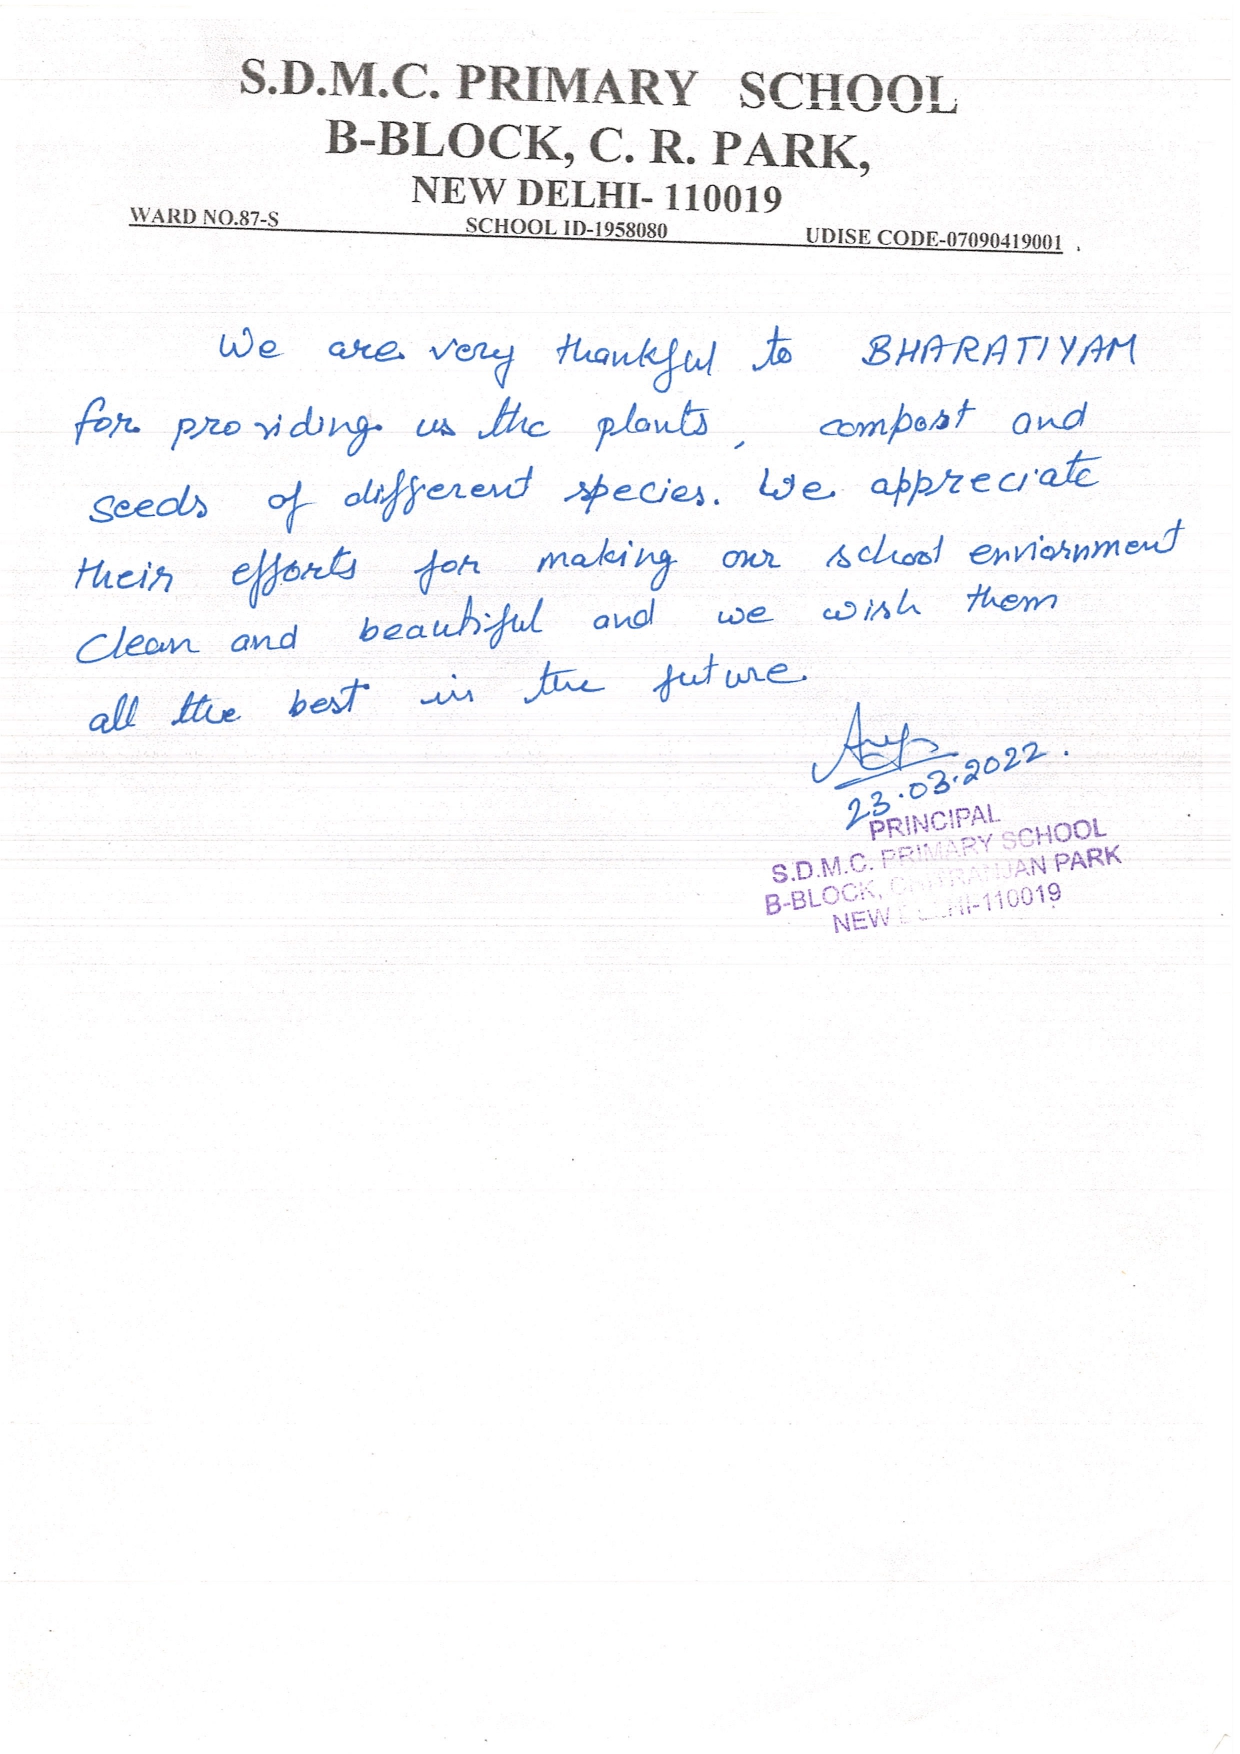 S.D.M.C. PRIMARY SCHOOL
B-BLOCK, C. R. PARK,
NEW DELHI- 110019
WARD NO.87-S SCHOOL ID-1958080 UDISE CODE-07090419001
We are very thankful to BHARATIYAM
for providing us the plants, compost and
seeds of different species. We appreciate
their efforts for making our school enviornment
clean and beautiful and we wish them
all the best in the future.
23.03.2022.
PRINCIPAL
S.D.M.C. PRIMARY SCHOOL
B-BLOCK, CHITRANJAN PARK
NEW DELHI-110019